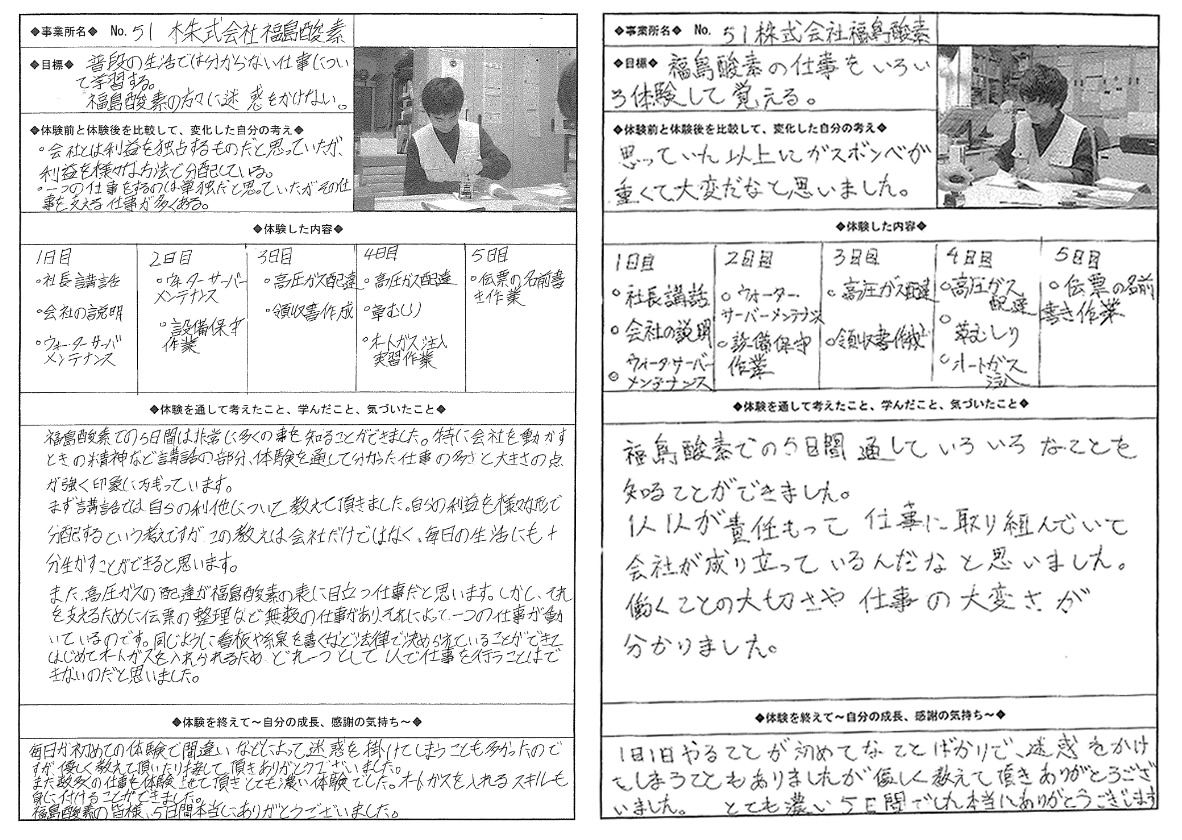 ◆事業所名◆ No. 51 株式会社福島酸素
◆目標◆ 普段の生活では分からない仕事につい
て学習する。
福島酸素の方々に迷惑をかけない。
◆体験前と体験後を比較して、変化した自分の考え◆
。会社とは利益を独占するものだと思っていたが、
利益を様々な方法で分配している。
。一つの仕事をするのは単独だと思っていたがその仕
事を支える仕事が多くある。
◆体験した内容◆
1日目
。社長講話
。会社の説明
。ウォーターサーバ
メンテナンス
2日目
。ウォーターサーバー
メンテナンス
。設備保守
作業
3日目
。高圧ガス配達
。領収書作成
4日目
。高圧ガス配達
。草むしり
。オートガス注入
実習作業
5日目
。伝票の名前書
き作業
◆体験を通して考えたこと、学んだこと、気づいたこと◆
福島酸素での5日間は非常に多くの事を知ることができました。特に会社を動かす
ときの精神など講話の部分、体験を通して分かった仕事の多さと大きさの点
が強く印象に
まず講話では自分の利他について教えて頂きました。自分の利益を様々な形で
分配するという考えですが、この教えは会社だけではなく、毎日の生活にも十
分生かすことができると思います。
また、高圧ガスの配達が福島酸素の表に目立つ仕事だと思います。しかし、それ
を支えるために伝票の整理など無数の仕事がありそれによって一つの仕事が動
いているのです。同じように看板や
はじめてオートガスを入れられるため どれ一つとして1人で仕事を行うことはで
きないのだと思いました。
◆体験を終えて〜自分の成長、感謝の気持ち〜◆
毎日が初めての体験で間違いなどによって迷惑を掛けてしまうことも多かったので
すが優しく教えて頂いたり接して頂きありがとうございました。
また数多くの仕事を体験させて頂きとても濃い体験でした。オートガスを入れるスキルも
身に付けることができました。
福島酸素の皆様、5日間本当にありがとうございました。
◆事業所名◆ No. 51 株式会社福島酸素
◆目標◆ 福島酸素の仕事をいろい
ろ体験して覚える。
◆体験前と体験後を比較して、変化した自分の考え◆
思っていた以上にガスボンベが
重くて大変だなと思いました。
◆体験した内容◆
1日目
。社長講話
。会社の説明
。ウォーターサーバー
メンテナンス
2日目
。ウォーター・
サーバーメンテナンス
。設備保守
作業
3日目
。高圧ガス配達
。領収書作成
4日目
。高圧ガス
配達
。草むしり
。オートガス
注入
5日目
。伝票の名前
書き作業
◆体験を通して考えたこと、学んだこと、気づいたこと◆
福島酸素での5日間通していろいろなことを
知ることができました。
1人1人が責任もって仕事に取り組んでいて
会社が成り立っているんだなと思いました。
働くことの大切さや仕事の大変さが
分かりました。
◆体験を終えて〜自分の成長、感謝の気持ち〜◆
1日1日やることが初めてなことばかりで、迷惑をかけ
てしまうこともありましたが優しく教えて頂きありがとうござ
いました。 とても濃い5日間でした本当にありがとうございます